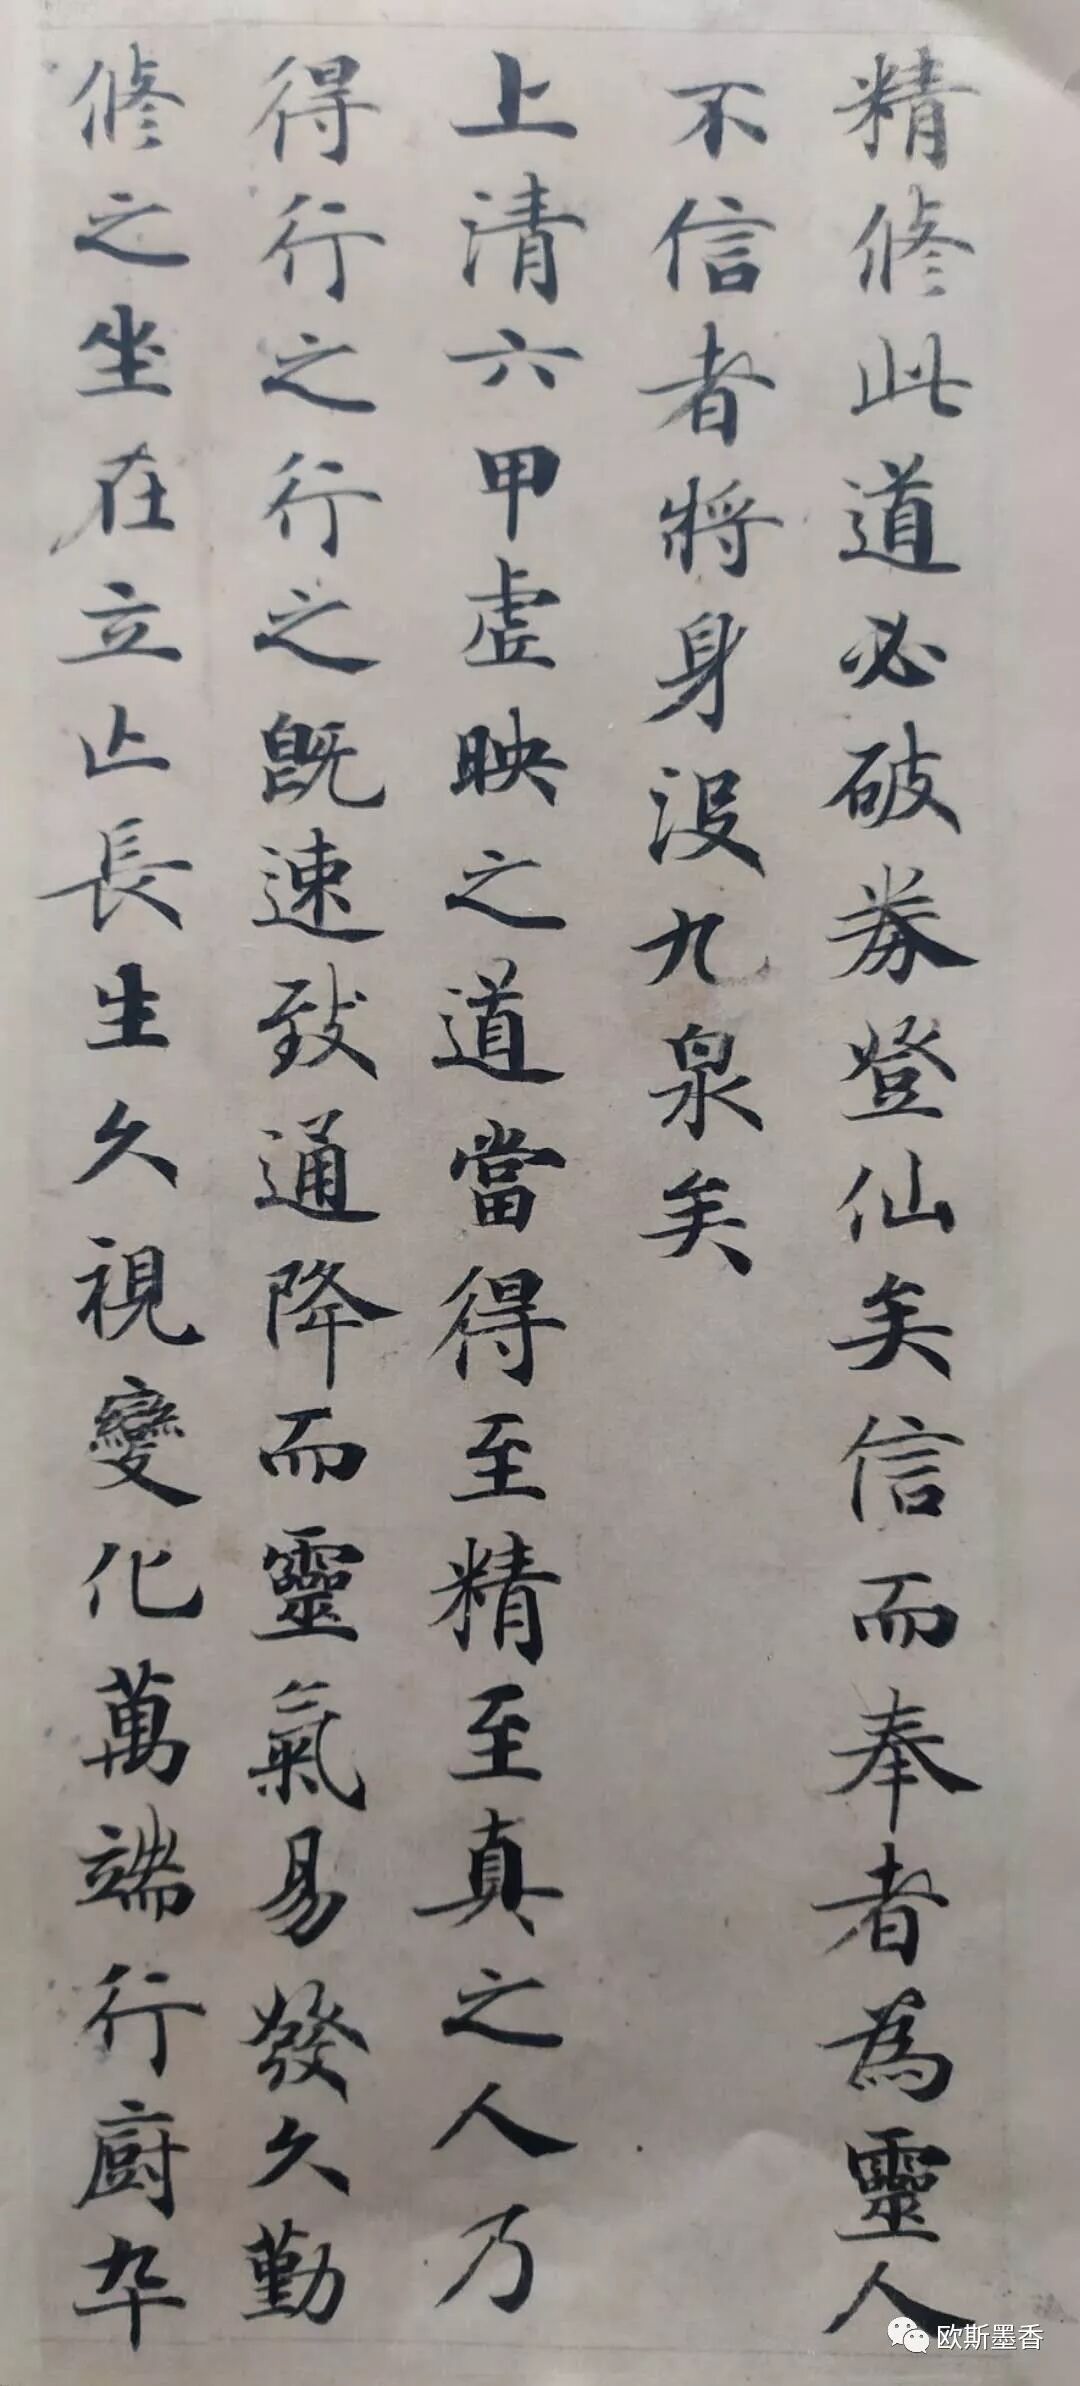 精脩此道必破券登仙矣信而奉者為靈人
不信者將身没九泉矣
上清六甲虛映之道當得至精至真之人乃
得行之行之既速致通降而靈氣易發久勤
脩之坐在立亾長生久視變化萬端行廚卒
欧斯墨香